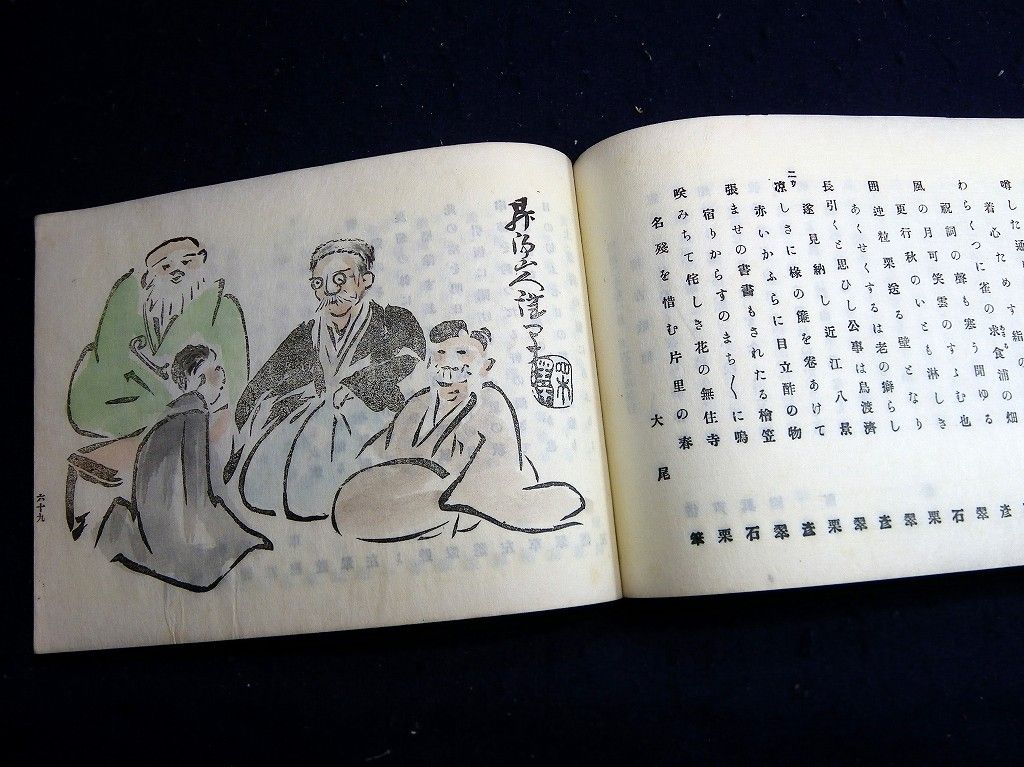 噂した通
着心ためす袷の
わらくつに雀の求食浦の畑
祝詞の聲も寒う聞ゆる
風の月可笑雲のすゝむ也
更行秋のいとも淋しき
粒栗送る壁となり
あくせくするは老の癖らし
長引くと思ひし公事は烏渡濟
遂見納し近江八景
ニウ
凉しさに椽の簾を卷あけて
赤いかふらに目立酢の物
張ませの書畫もされたる檜笠
宿りからすのまち〳〵に鳴
咲みちて侘しき花の無住寺
名殘を惜む片里の春
大尾
彦
翠
石
栗
翠
彦
翠
栗
彦
翠
石
栗
筆
六十九